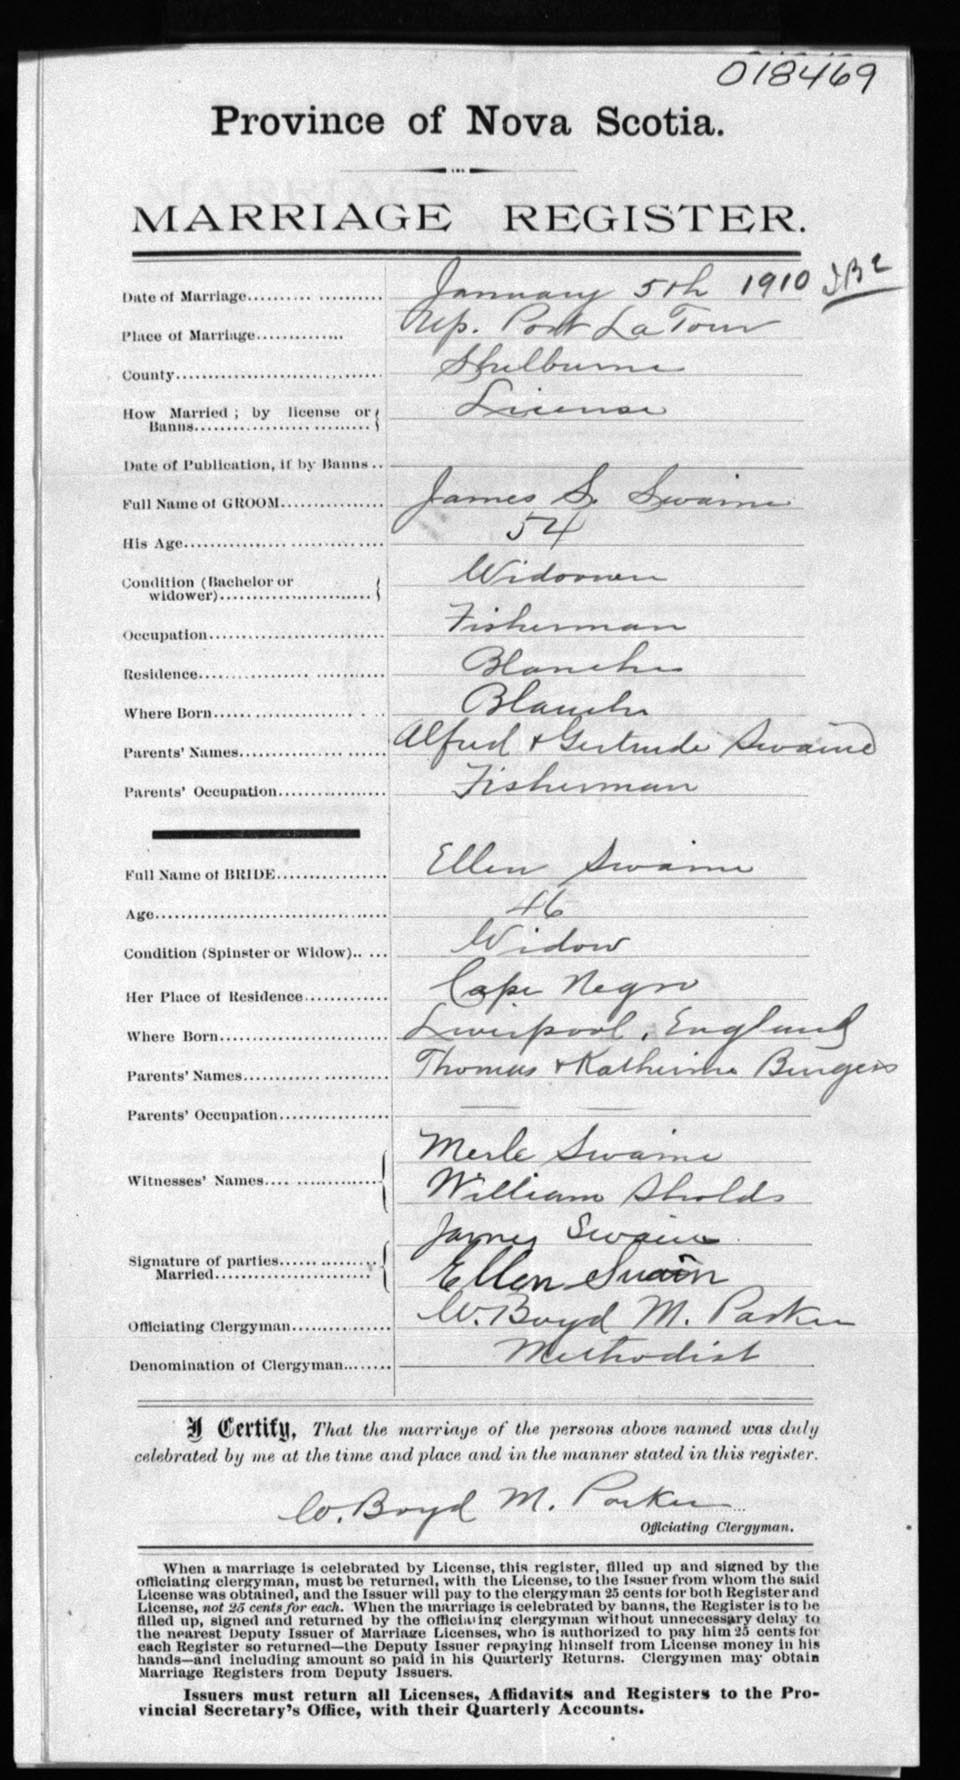 018469
Province of Nova Scotia.
MARRIAGE REGISTER.
Date of Marriage.................... January 5th 1910
Place of Marriage.............. Up. Port LaTour
County................................ Shelburne
How Married; by license or
Banns.............................. License
Date of Publication, if by Banns..
Full Name of GROOM................ James S. Swaine
His Age............................... 54
Condition (Bachelor or
widower)......................... Widower
Occupation........................... Fisherman
Residence............................ Blanche
Where Born......................... Blanche
Parents' Names...................... Alfred & Gertrude Swaine
Parents' Occupation................. Fisherman
Full Name of BRIDE................. Ellen Swaine
Age.................................... 46
Condition (Spinster or Widow)..... Widow
Her Place of Residence............. Cape Negro
Where Born......................... Liverpool, England
Parents' Names...................... Thomas & Katherine Burgess
Parents' Occupation.................
Merle Swaine
Witnesses' Names................... William Sholds
James Swaine
Signature of parties................
Married......................... Ellen Swain
Officiating Clergyman............... W. Boyd M. Parker
Denomination of Clergyman........ Methodist
I Certify, That the marriage of the persons above named was duly
celebrated by me at the time and place and in the manner stated in this register.
W. Boyd M. Parker
Officiating Clergyman.
When a marriage is celebrated by License, this register, filled up and signed by the
officiating clergyman, must be returned, with the License, to the Issuer from whom the said
License was obtained, and the Issuer will pay to the clergyman 25 cents for both Register and
License, not 25 cents for each. When the marriage is celebrated by banns, the Register is to be
filled up, signed and returned by the officiating clergyman without unnecessary delay to
the nearest Deputy Issuer of Marriage Licenses, who is authorized to pay him 25 cents for
each Register so returned—the Deputy Issuer repaying himself from License money in his
hands—and including amount so paid in his Quarterly Returns. Clergymen may obtain
Marriage Registers from Deputy Issuers.
Issuers must return all Licenses, Affidavits and Registers to the Pro-
vincial Secretary's Office, with their Quarterly Accounts.